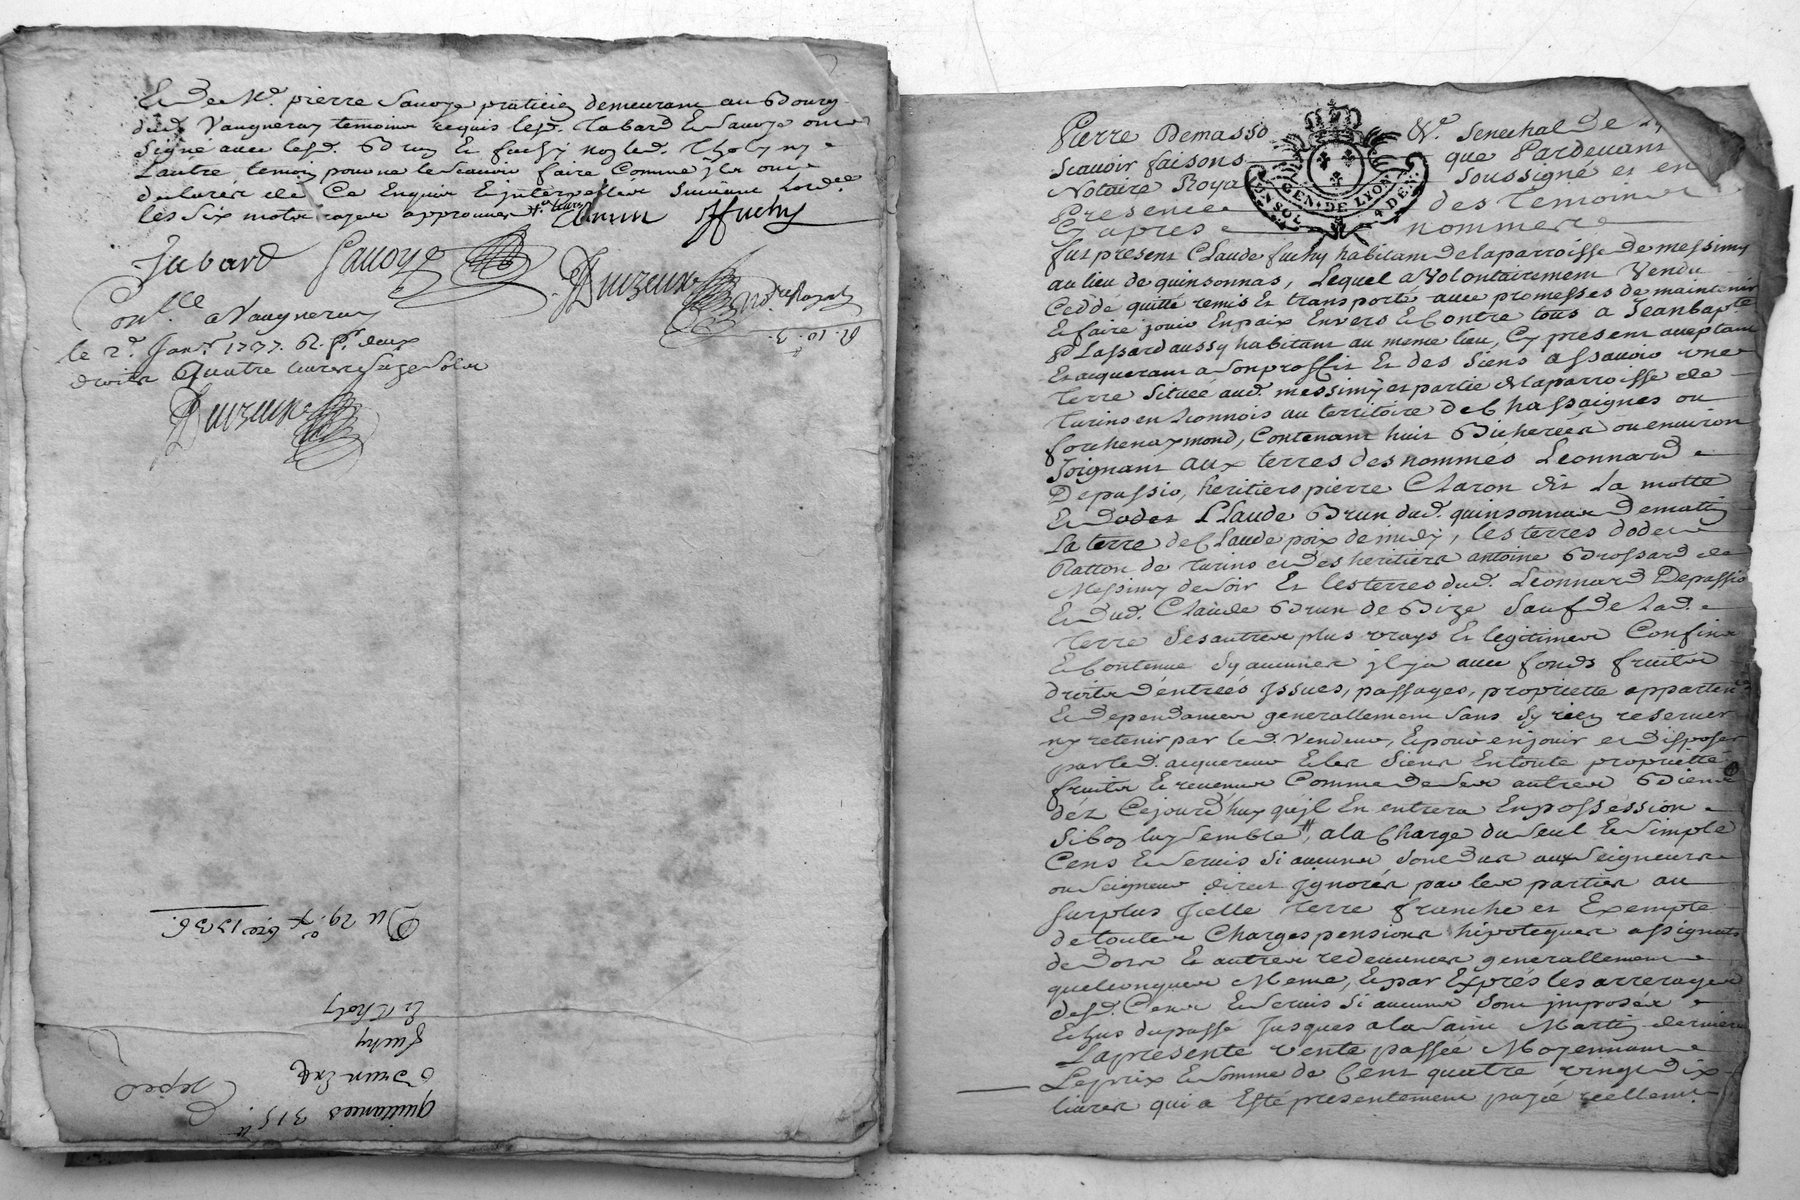 Et de Me. pierre Savoye praticien demeurant au Bourg
dud. Vaugneray temoins requis lesd. Tabard et Savoye ont
signé avec lesd. Brun et fuchy non led. Tholy ny
Lautre temoin pour ne le scavoir faire Comme ils ont
declaré de Ce Enquis et interpellés suivant Lord.ce
les six mots rayer approuver
Brun ffuchy
Tabard Savoye
Duizeux Nore. Royal
Con.lle a Vaugneray
le 2e. Janr. 1737. R. pr. deux
droits Quatre livres seze Solz
Duizeux
R. 10. 3.
Du 29e. Xbre 1736.
quittances 315 lt
Brun Exé
fuchy
Et Tholy
Expéd
Pierre Demasso Nr. Senechal de Ly
Scavoir faisons que Pardevant
Notaire Roya soussigné et en
Presence des Temoins
Cy apres nommer
GEN. DE LYON 4 DEN.
fut present Claude fuchy habitant de la parroisse de messimy
au lieu de quinsonnas, Lequel a Volontairement Vendu
Ceddé quitté remis et transporté avec promesses de maintenir
et faire jouir En paix Envers et Contre tous a Jean bapte.
P Lassard aussy habitant au meme lieu, Cy present acceptant
Et aquerant a Son proffit Et des Siens assavoir une
Terre Située aud. messimy et partie de la parroisse de
Turins en Lionnois au territoire de Chassaignes ou
forchenaymond, Contenant huit Bicherées ou environ
Joignant aux terres des nommés Leonnard
Depassio, heritiers pierre Claron dit La motte
Et dodet Claude Brun dud. quinsonnas de matin
La terre de Claude poix de midy, les terres dodet
Ratton de Turins et des heritiers antoine Brossard de
Messimy de Soir Et les terres dud. Leonnard Depassio
Et dud. Claude Brun de Bize Sauf de lad.
Terre Ses autres plus vrays et legitimes Confins
Et Contenue Sy aucunes il y a avec fonds fruits
droits d'entrées Issues, passages, propriette apparten.ces
Et dependances generallement Sans Sy rien reserver
ny retenir par led. Vendeur, Et pour en jouir et disposer
par led. acquereur Et les Siens En toute propriétté
fruits Et revenus Comme de Ses autres Biens
déz Cejourd'huy qu'jl En entrera En possession
Si bon luy semble, a la Charge du Seul Et Simple
Cens Et Servis Si aucuns Sont Dus aux Seigneurs
ou Seigneur direct Ignorés par les parties au
Surplus Jcelle Terre franche et Exempte
de toutes Charges pensions hipoteques assignats
de Dots Et autres redevances generallement
quelconques Meme, Et par Exprés les arrerages
desd. Cens Et Servis Si aucuns Sont jmposés
Et dus du passé Jusques a la Saint Martin derniere
La presente vente passée Moyennant
Le prix Et Somme de Cent quatre vingt dix
livres qui a Esté presentement payé réellemt.